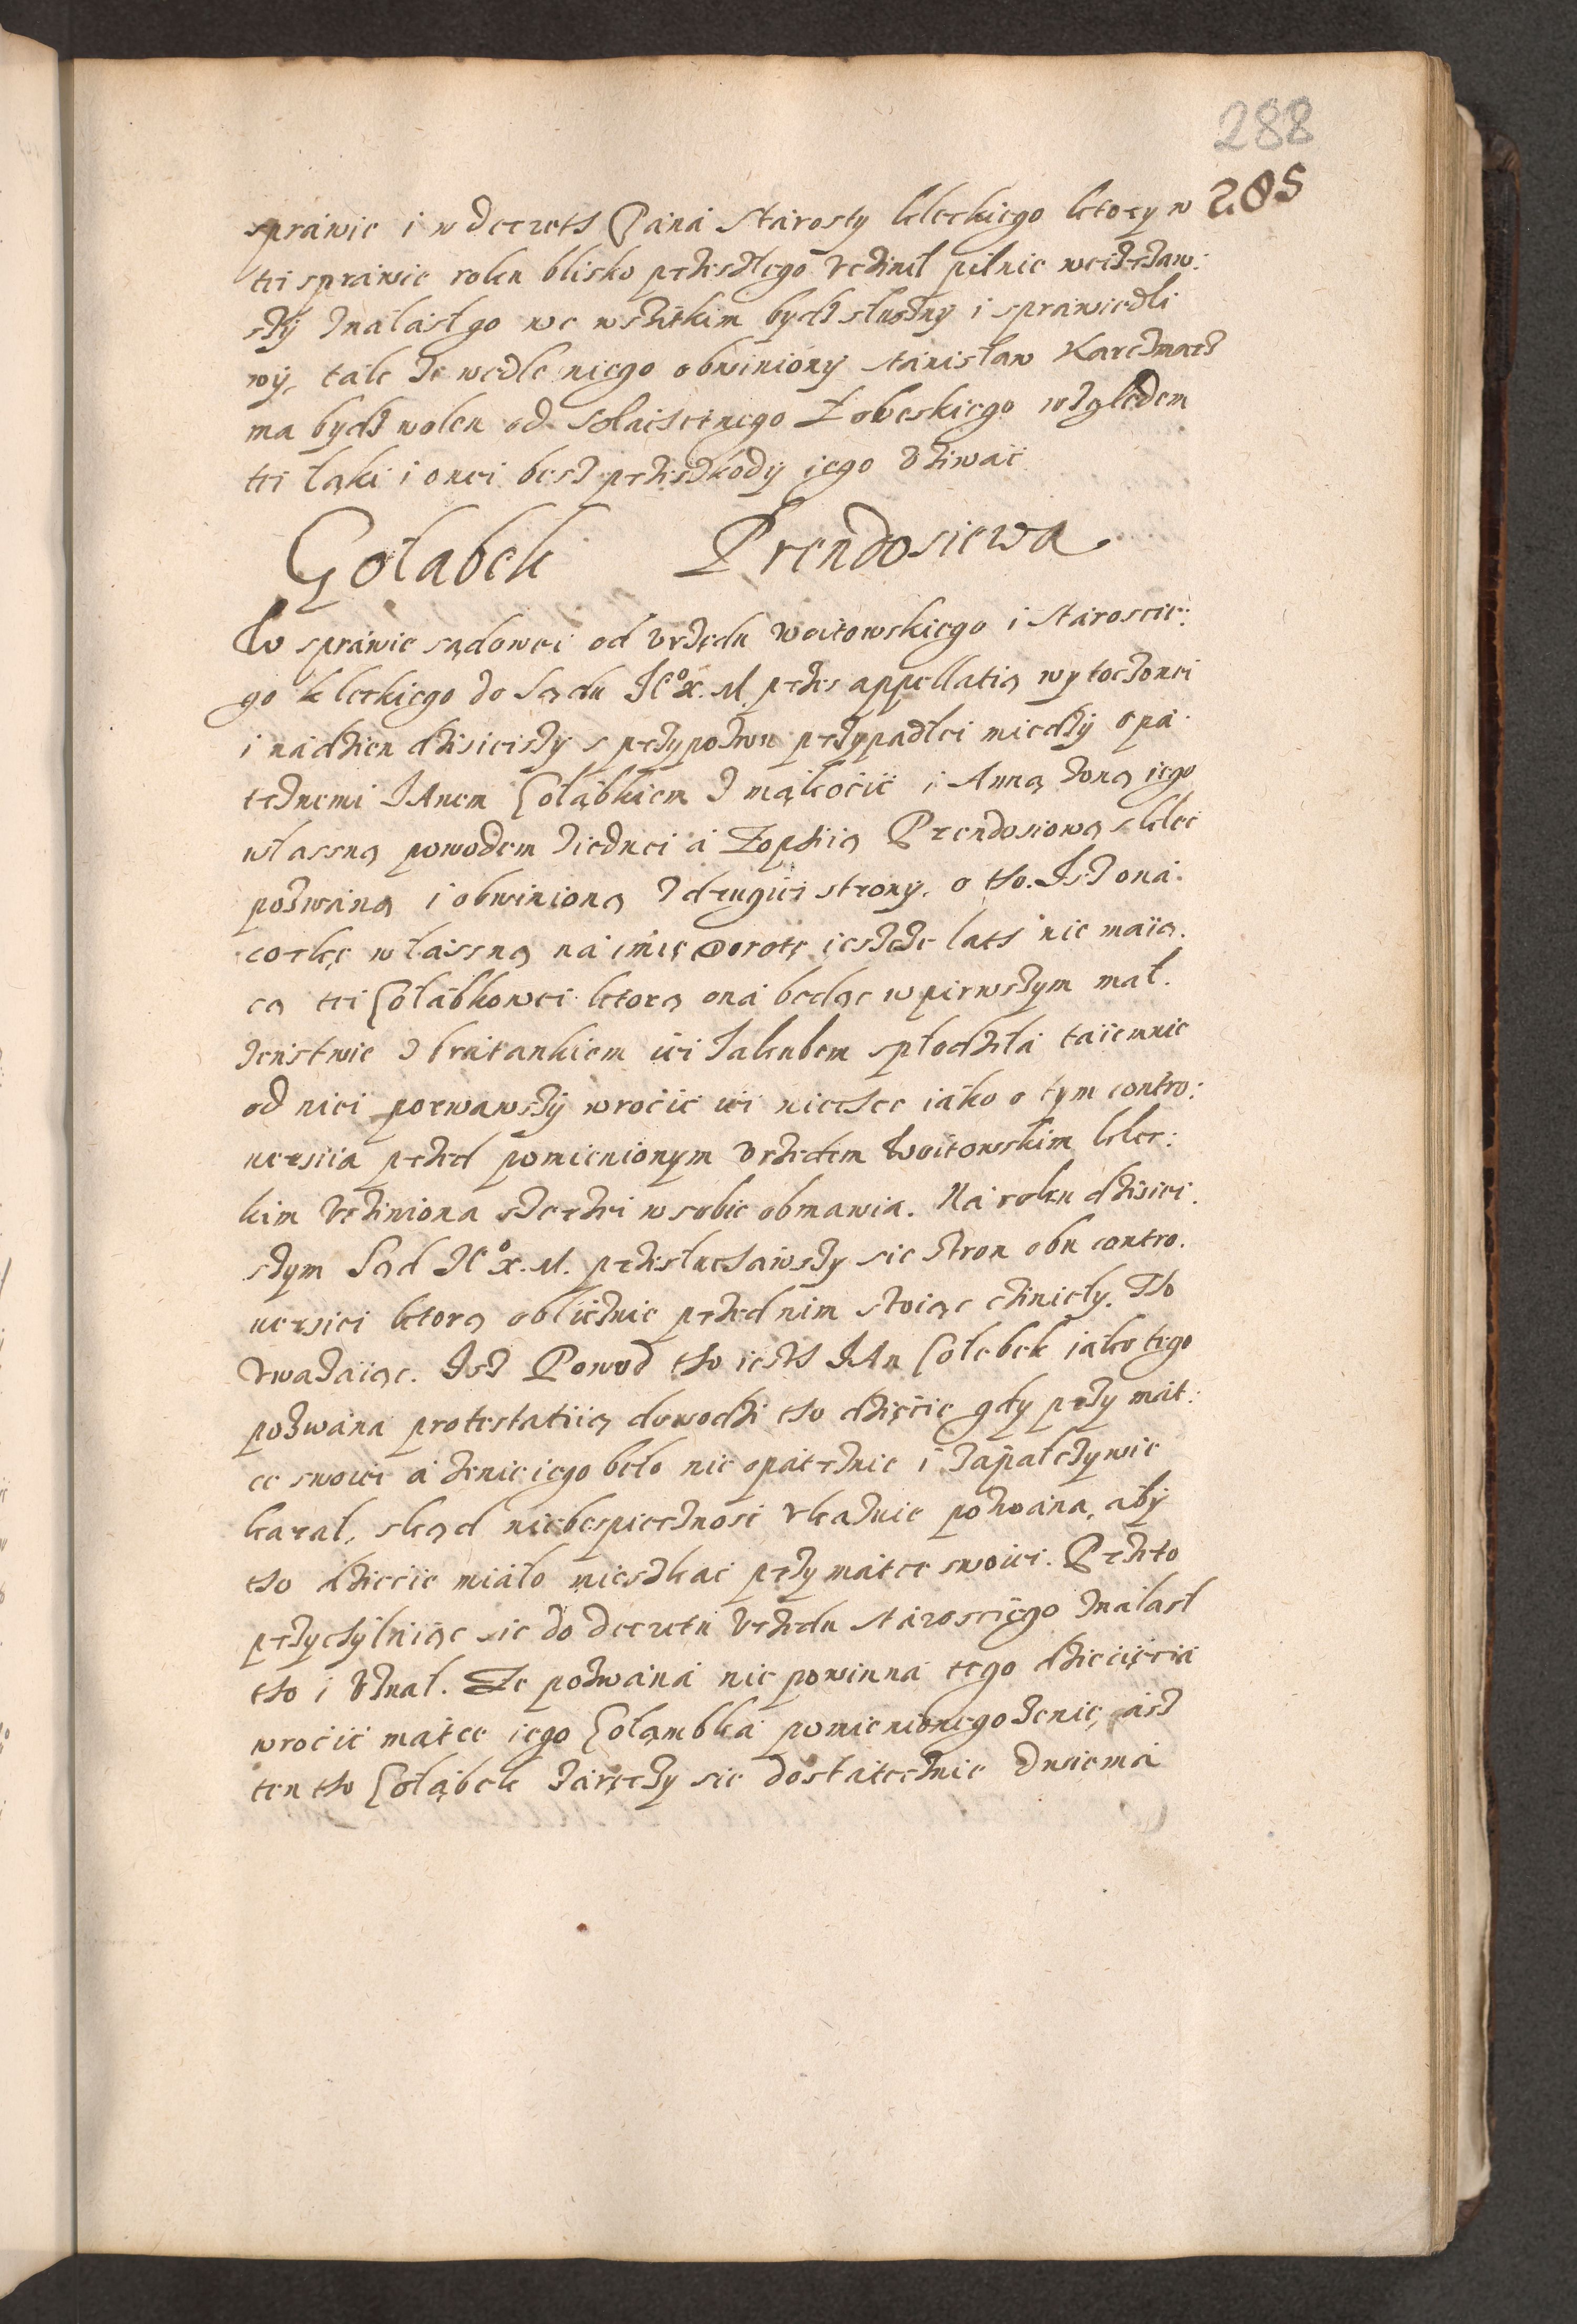 288
285
sprawie i w decrets Pana Starosty kleckiego ktory w
tei sprawie roku blisko przeszłego uczinil pilnie weizrzaw:
szy znalasł go we wszitkim bydz słuszny i sprawiedli
wy, tak ze wedle niego obwiniony Stanisław Karczmarz
ma bydz wolen od Solaisetnego Łobeskiego względem
tei łąki i onei besz przeszkody iego uziwać
Gołabek Prendosiewa
W sprawie sądowei od urzędu woitowskiego i Staroscie:
go kleckiego do Sądu J°x.M. przes appellatią wytoczonei
i nadzien dzisieiszy s przypozwu przypadłei miedzy opa
trznemi JAnem Gołąbkiem z mąkocić i Anną zoną iego
własną powodem ziednei a Zophią Prendosiową s klec
pozwaną i obwinioną z drugiei strony. o tho. Isz ona
corkę własną na imię Dorotę ieszcze lats nie maią.
cą tei Gołąbkowei ktorą ona bedąc w pirwszym mał.
zenstwie z bratankiem iei Jakubem spłodziła taiemnie
od niei porwawszy wrocić iei niechce iako o tym contro:
uersiia przed pomienionym urzedem Woitowskim klec:
kim uczniona szerzei w sobie obmawia. Na roku dzisiei.
szym Sąd J°x.M. przesłuchawszy sie stron obu contro.
uersiei ktorą oblicznie przed nim stoiąc czinieły. Tho
uwazaiąc. Isz Powod tho iests JAn Gołebek iako tego
pozwana protestatiią dowodzi tho dziecie gdy przy mat:
ce swoiei a zenie iego beło nie opatrznie i zapalczywie
karał, skąd niebespiecznosc ukaznie pozwana, aby
tho dziecie miało mieszkac przy matce swoiei. Przeto
przychylniąc sie do decretu urzedu staroscięgo znalasł
tho i uznal. Ze pozwana nie powinna tego dziecięcia
wrocić matce iego Gołąmbka pomienionego zenie, aisz
ten tho Gołąbek zaręczy sie dostatecznie dwiema